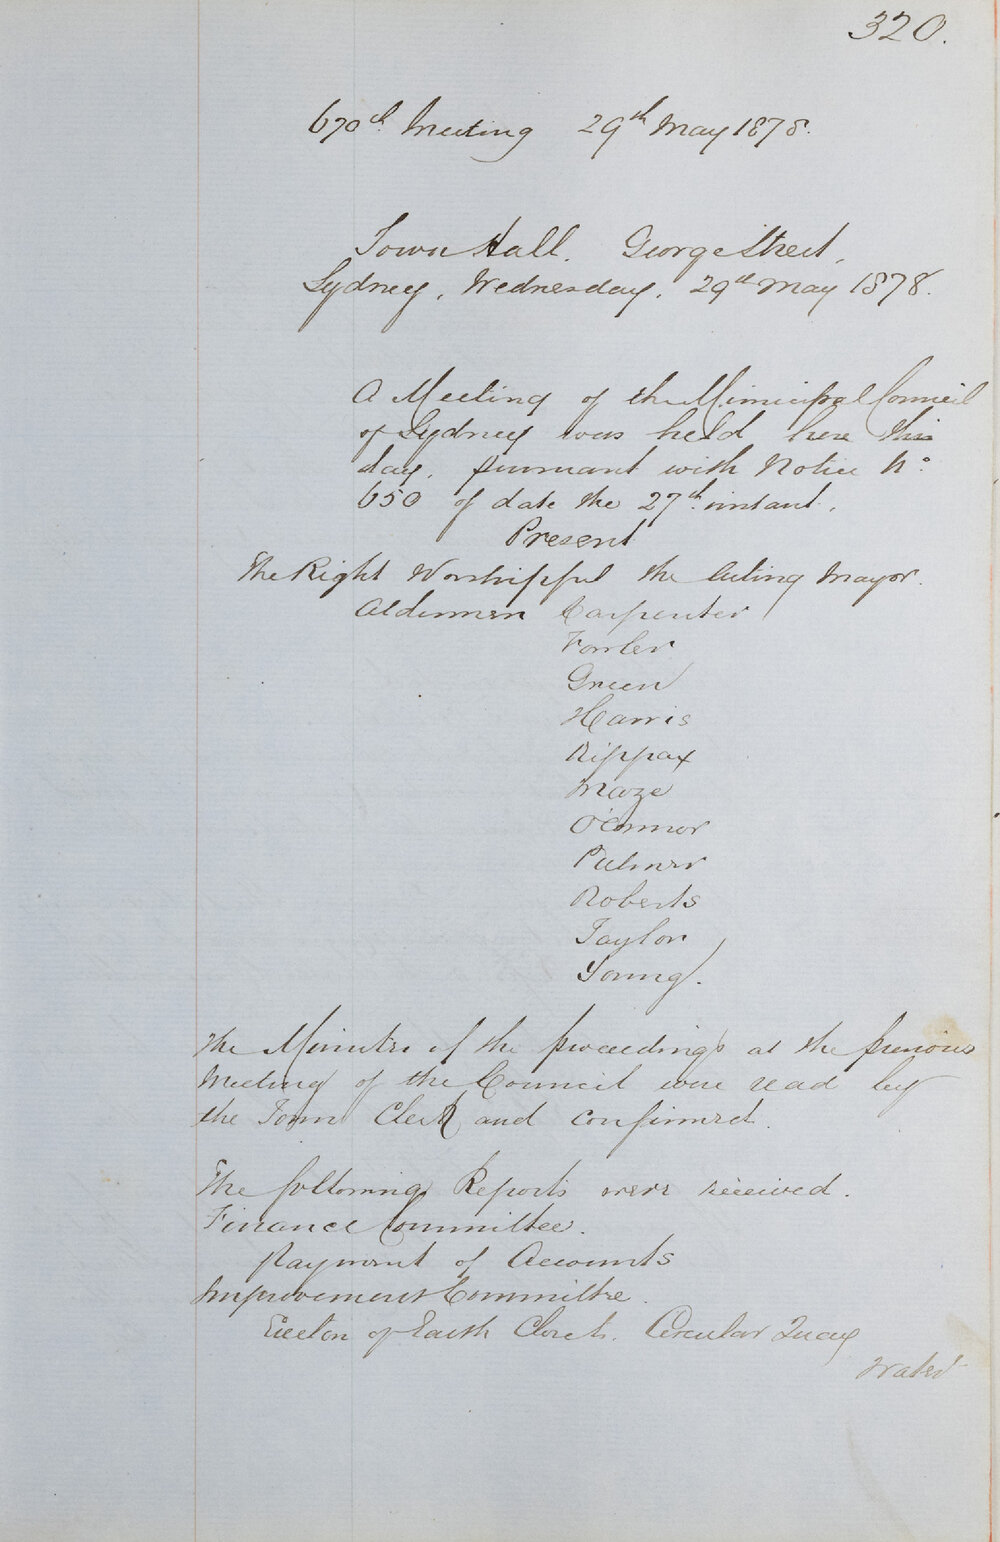 320.
670th Meeting 29th May 1878.
Town Hall. George Street,
Sydney, Wednesday, 29th May 1878.
A Meeting of the Municipal Council
of Sydney was held here this
day, pursuant with Notice No
650 of date the 27th instant.
Present
The Right Worshipful the Acting Mayor.
Aldermen Carpenter
Fowler
Green
Harris
Kippax
Maze
O'Connor
Palmer
Roberts
Taylor
Young.
The Minutes of the proceedings at the previous
Meeting of the Council were read by
the Town Clerk and confirmed.
The following Reports were received.
Finance Committee.
Payment of Accounts
Improvement Committee.
of Earth Closet. Circular Quay
Water